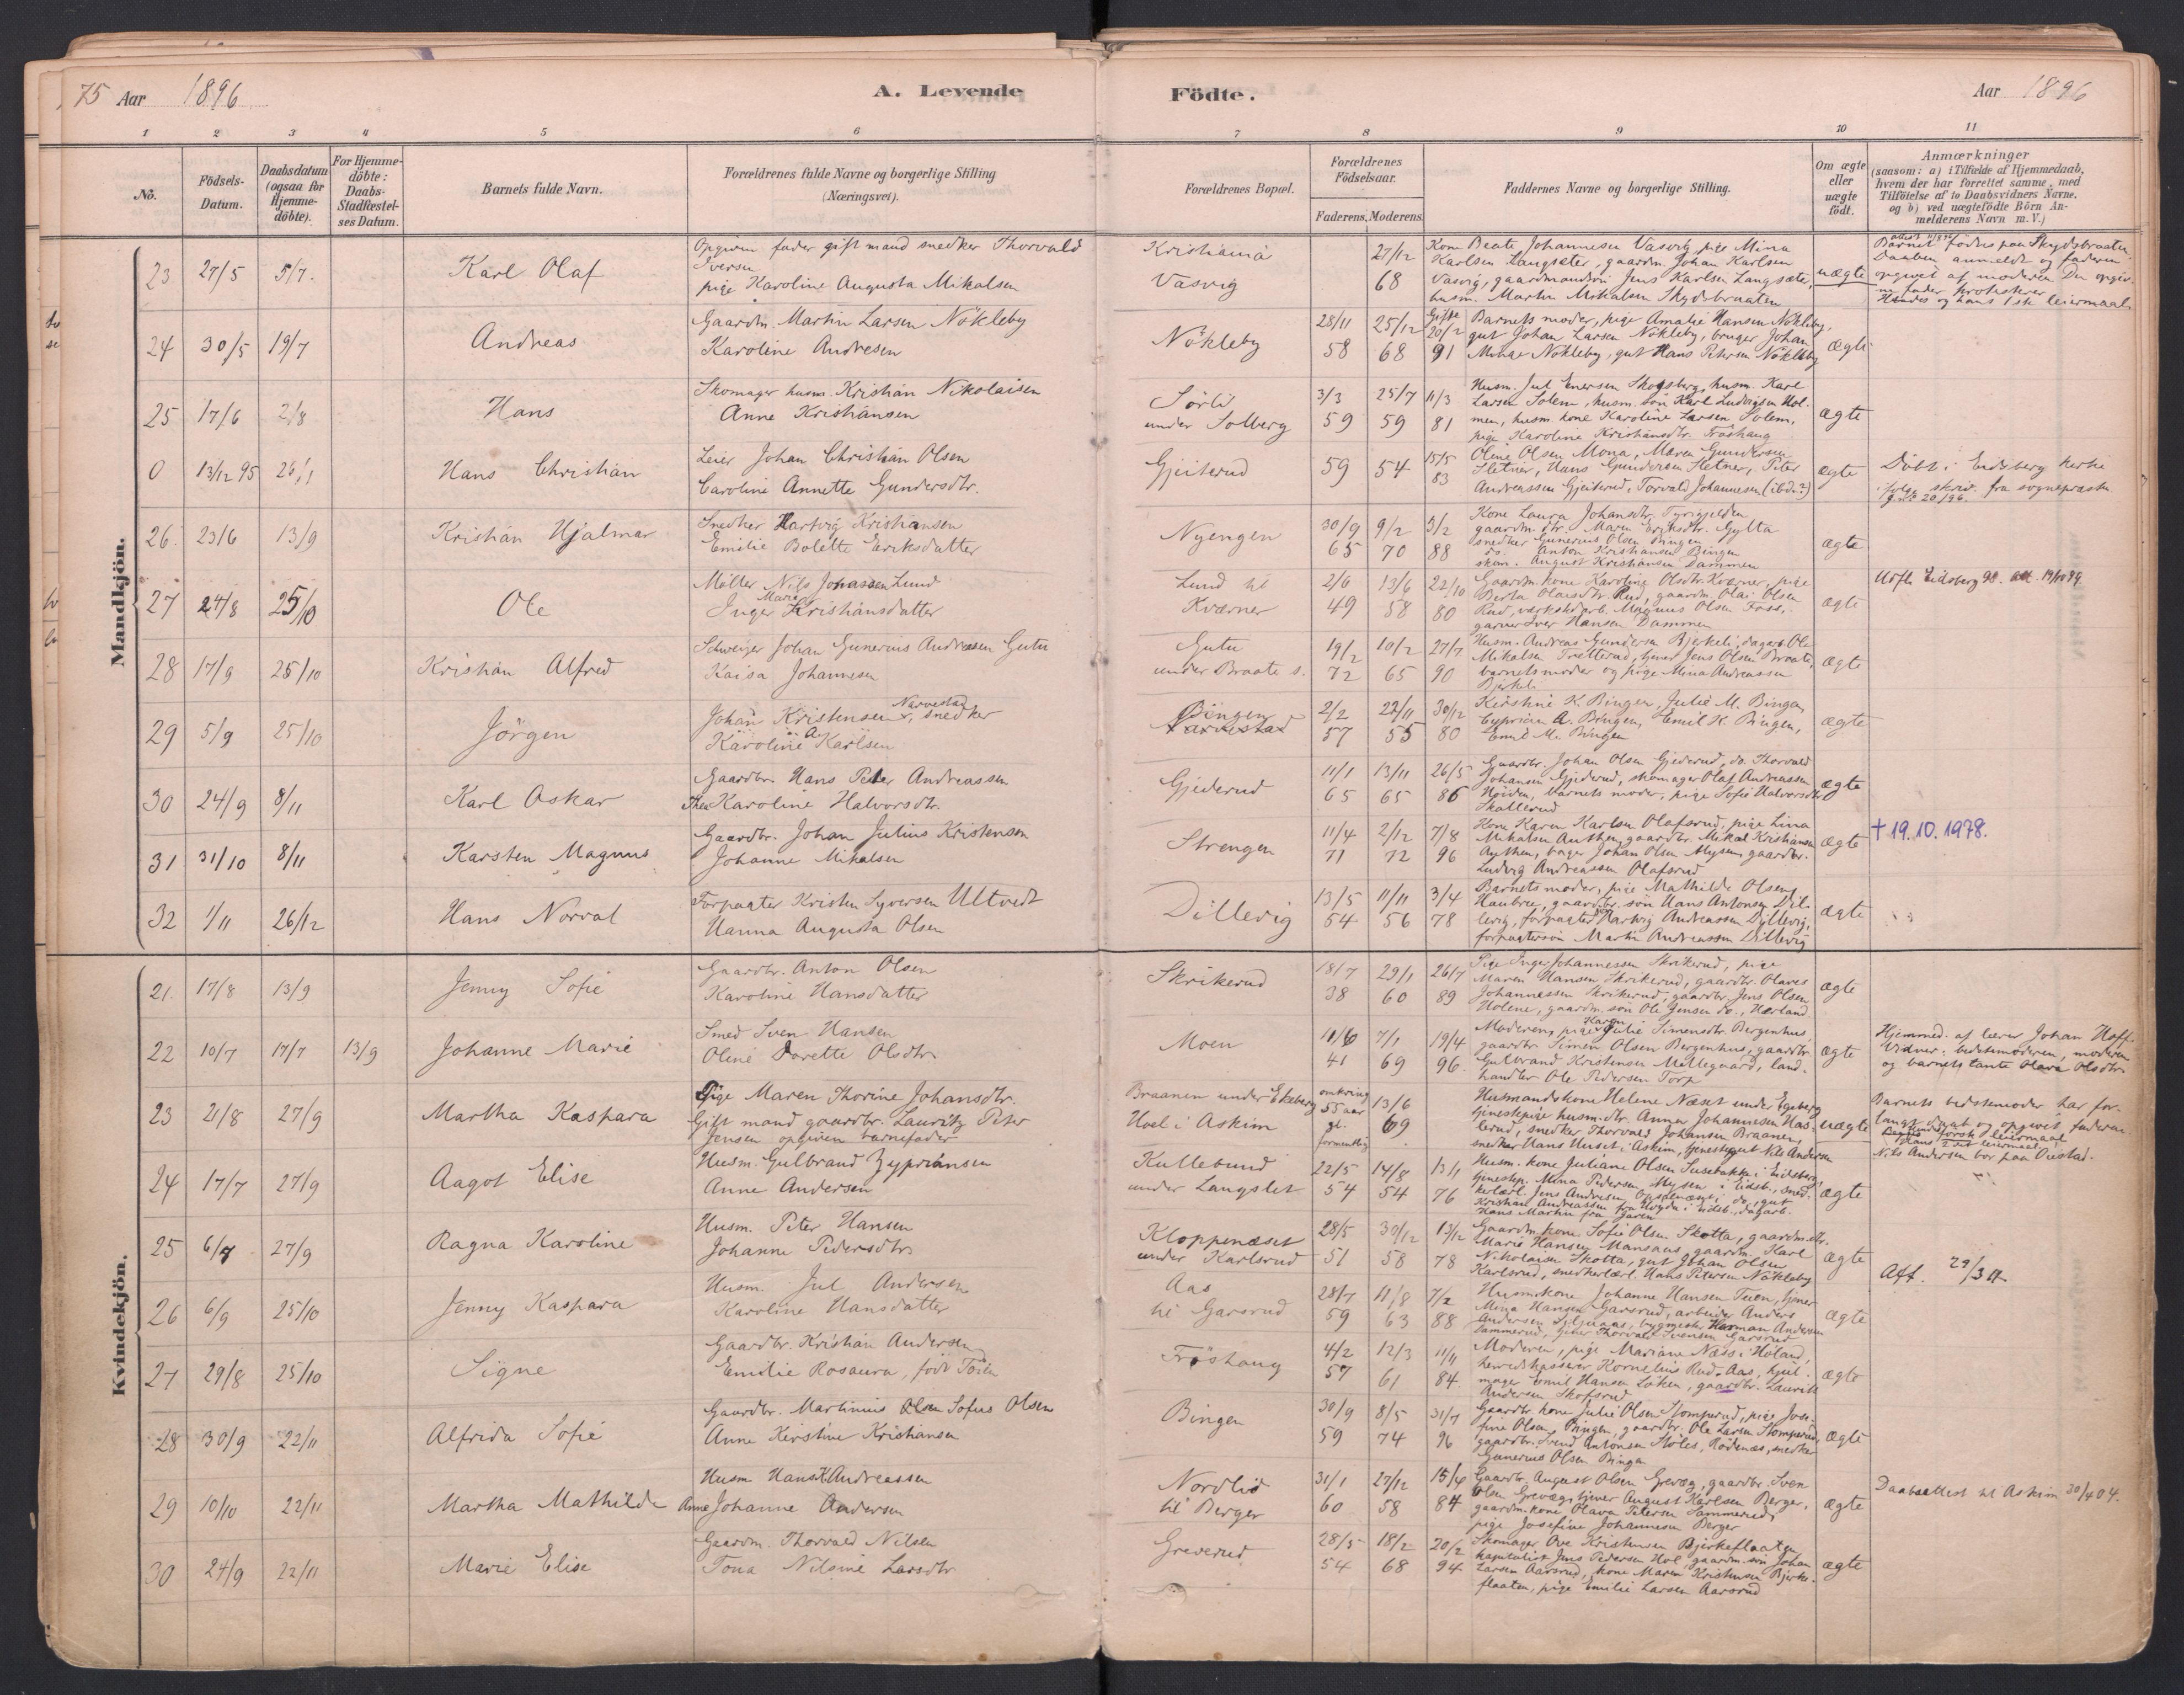 75 Aar 1896
A. Levende
Födte.
Aar 1896
1 2 3 4 5 6 7 8 9 10 11
No.
Födsels-Datum.
Daabsdatum (ogsaa for Hjemmedöbte).
For Hjemmedöbte: Daabs-Stadfæstelses Datum.
Barnets fulde Navn.
Forældrenes fulde Navne og borgerlige Stilling (Næringsvei).
Forældrenes Bopæl.
Forældrenes Födselsaar.
Faderens. Moderens.
Faddernes Navne og borgerlige Stilling.
Om ægte eller uægte födt.
Anmærkninger (saasom: a) i Tilfælde af Hjemmedaab, hvem der har forrettet samme, med Tilföielse af to Daabsvidners Navne. og b) ved uægtefödte Börn Anmelderens Navn m. V.)
Mandkjön.
23 27/5 5/7. Karl Olaf
Opgiven fader gift mand snedker Thorvald
Iversen
pige Karoline Augusta Mikalsen
Kristiania
Vasvig
27/12
68
Kone Beate Johannesen Vasvig, pige Mina
Karlsen Langsæter, gaardm. Johan Karlsen
Vasvig, gaardmandsøn Jens Karlsen Langsæter,
husm. Martin Mikalsen Skydsbraaten
uægte
Barnet födtes paa Skydsbraaten.
Daaben anmeldt og faderen
opgivet af moderen. Den opgiv-
ne fader protesterer
Hendes og hans 1ste leiermaal
24 30/5 19/7 Andreas
Gaardm. Martin Larsen Nökleby
Karoline Andresen
Nökleby
28/11 25/12 Gifte 20/2
58 68 91
Barnets moder, pige Amalie Hansen Nökleby,
gut Johan Larsen Nökleby, bruger Johan
Nökleby, gut Hans Petersen Nökleby
ægte
25 17/6 2/8 Hans
Skomager husm. Kristian Nikolaisen
Anne Kristiansen
Sörli
under Solberg
3/3 25/7 11/3
59 59 81
Husm. Jul Enersen Skogsberg, husm. Karl
Larsen Solem, husm. søn Karl Ludvigsen Hol-
men, husm. kone Karoline Larsen Solem,
pige Karoline Kristiansdtr. Fröshaug
ægte
0 13/12 95 26/1 Hans Christian
Leier Johan Christian Olsen
Caroline Annette Gundersdtr.
Gjeiterud
59 54 15/5 83
Oline Olsen Mona, Maren Gundersen
Sletner, Hans Gundersen Sletner, Peter
Andreassen Gjeiterud, Torvald Johannesen (ibd.?)
ægte
Döbt i Eidsberg kirke
ifølge skriv. fra sogneprästen
20/96.
26. 23/6 13/9 Kristian Hjalmar
Snedker Hartvig Kristiansen
Emilie Bolette Eriksdatter
Nyengen
30/9 9/2 3/2
65 70 88
Kone Laura Johansdtr. Tyrigjelden
gaardm. dtr. Maren Eriksdtr. Gylta
snedker Gunerius Olsen Bingen
do. Anton Kristiansen Bingen
skom. August Kristiansen Dammen
ægte
27 24/8 25/10 Ole
Möller Nils Jonassen Lund
Inger Marie Kristiansdatter
Lund til
Kværner
2/6 13/6 22/10
49 58 80
Gaardm. kone Karoline Olsdtr. Kværner, pige
Berta Olaisdtr. Rud, gaardm. Olai Olsen
Rud, værkstedarb. Magnus Olsen Foss,
garver Iver Hansen Dammen
ægte
Utfl. Eidsberg 98. att. 19/10 99.
28 17/9 25/10 Kristian Alfred
Schweizer Johan Gunerius Andreassen Gutu
Kaisa Johannesen
Gutu
under Braate s.
19/2 10/2 27/7
72 65 90
Husm. Andreas Gundersen Bjerkeli, dagarb. Ole
Mikalsen Tretterud, tjener Jens Olsen Braate,
barnets moder og pige Mina Andreassen
Bjerkeli
ægte
29 5/9 25/10 Jörgen
Johan Kristensen Narvestad, snedker
Karoline A. Karlsen
Bingen
Narvestad
2/2 22/11 30/12
57 55 80
Kirstine K. Bingen, Julie M. Bingen
Cyprian A. Bingen, Emil K. Bingen,
Emil M. Bingen
ægte
30 24/9 8/11 Karl Oskar
Gaardbr. Hans Peter Andreassen
Thea Karoline Halvorsdtr.
Gjederud
11/1 13/11 26/5
65 65 86
Gaardbr. Johan Olsen Gjederud, do. Thorvald
Johansen Gjederud, skomager Olaf Andreassen
Höiden, barnets moder, pige Sofie Halvorsdtr.
Skallerud
ægte
31 31/10 8/11 Karsten Magnus
Gaardbr. Johan Julius Kristensen
Johanne Mikalsen
Strengen
11/4 2/12 7/8
71 72 96
Kone Karen Karlsen Olafsrud, pige Lina
Mikalsen Authen, gaardbr. Mikal Kristiansen
Authen, bager Johan Olsen Mysen, gaardbr.
Ludvig Andreassen Olafsrud
ægte
† 19.10.1978.
32 1/11 26/12 Hans Norval
Forpagter Kristen Syversen Ultvedt
Hanna Augusta Olsen
Dillevig
13/5 11/11 3/4
54 56 78
Barnets moder, pige Mathilde Olsen
Haubree, gaardbr. søn Hans Antonsen Dil-
levig, forpagter Hartvig Andreassen Dillevig,
forpagtersøn Martin Andreassen Dillevig
ægte
Kvindekjön.
21. 17/8 13/9 Jenny Sofie
Gaardbr. Anton Olsen
Karoline Hansdatter
Skrikerud
18/7 29/1 26/7
38 60 89
Pige Inger Johannessen Skrikerud, pige
Maren Hansen Skrikerud, gaardbr. Olaves
Johannessen Skrikerud, gaardbr. Jens Olsen
Holene, gaardm. søn Ole Jensen do., Hærland
ægte
22 10/7 17/7 13/9 Johanne Marie
Smed Sven Hansen
Oline Dorette Olsdtr.
Moen
11/6 7/1 19/4
41 69 96.
Moderen, pige Karen Julie Simensdtr. Bergenhus,
gaardbr. Simen Olsen Bergenhus, gaardbr.
Gulbrand Kristensen Mellegaard, land-
handler Ole Pedersen Torp
ægte
Hjemmed. af lærer Johan Hoff.
Vidner: bedstemoderen, moderen
og barnets tante Olava Olsdtr.
23 21/8 27/9 Martha Kaspara
Pige Maren Thorine Johansdtr.
Gift mand gaardbr. Lauritz Peter
Jensen opgiven barnefader
Braanen under Ekeberg
Hoel i Askim
omkring
55 aar
gl.
formentlig
13/6
69
Husmandskone Helene Næset under Egeberg
tjenestepige husm. dtr. Anna Johannesen Has-
lerud, snedker Thorvald Johansen Braanen,
snedker Hans Huset i Askim, tjenestegut Nils Andersen
uægte
Barnets bedstemoder har for-
langt daab og opgivet faderen
Hendes første leiermaal
Hans 2det leiermaal
Nils Andersen bor paa Oustad.
24 17/7 27/9 Aagot Elise
Husm. Gulbrand Zypriansen
Anne Andersen
Kullebund
under Langslet
22/5 14/8 13/1
54 54 76
Husm. kone Juliane Olsen Susebakke i Eidsberg,
tjenestep. Mina Pedersen Mysen i Eidsb., sned-
kerlærl. Jens Andresen do., gut
Kristian Andreassen fra i Eidsb., dagarb.
Hans Martin fra
ægte
25 6/7 27/9 Ragna Karoline
Husm. Peter Hansen
Johanne Pedersdtr.
Kloppenæset
under Karlsrud
28/5 30/12 13/12
51 58 78
Gaardm. kone Sofie Olsen Skotta, gaardm. dtr.
Marie Hansen Mansaas, gaardm. Karl
Nikolaisen Skotta, gut Johan Olsen
Karlsrud, snedkerlærl. Hans Petersen Nökleby
ægte
Att. 22/3 11
26 6/9 25/10 Jenny Kaspara
Husm. Jul Andersen
Karoline Hansdatter
Aas
til Garsrud
28/7 11/8 7/2
59 63 88
Husm. kone Johanne Hansen Tuen, tjener
Mina Hansen Garsrud, arbeider Anders
Andersen, bygmester Herman Andersen
Sammerud, tjener Thorvald Svensen Garsrud
ægte
27 29/8 25/10 Signe
Gaardbr. Kristian Andersen
Emilie Rosaura, født Töien
Fröshaug
4/2 12/3 11/11
57 61 84.
Moderen, pige Mariane Næss i Höland,
herredskasserer Kornelius Rud-Aas, hjul-
mager Emil Hansen Löken, gaardbr. Laurits
Andersen Skofsrud
ægte
28 30/9 22/11 Alfrida Sofie
Gaardbr. Martinius Sofus Olsen
Anne Kirstine Kristiansen
Bingen
30/9 8/5 31/7
59 74 96
Gaardbr. kone Julie Olsen Stomperud, pige Jose-
fine Olsen Bingen, gaardbr. Ole Larsen Stomperud,
gaardbr. Svend Antonsen Stöles, Rödenæs, snedker
Gunerius Olsen Bingen
ægte
29 10/10 22/11 Martha Mathilde
Husm. Hans K. Andreassen
Anne Johanne Andersen
Nordlid
til Berger
31/1 27/12 15/4
60 58 84
Gaardbr. August Olsen Grevæg, gaardbr. Sven
Olsen Grevæg, tjener August Karlsen Berger,
gaardm. kone Olava Petersen Sammerud,
pige Josefine Johannesen Berger
ægte
Daabsattest til Askim 30/4 04.
30 24/9 22/11 Marie Elise
Gaardm. Thorvald Nilsen
Tona Nilsine Larsdtr.
Greverud
28/5 18/2 20/2
54 68 94
Skomager Ove Kristensen Bjerkeflaaten,
kapitalist Jens Pedersen Hol, gaardm. søn Johan
Larsen Aarsrud, kone Maren Kristensen Bjerke-
flaaten, pige Emilie Larsen Aarsrud
ægte